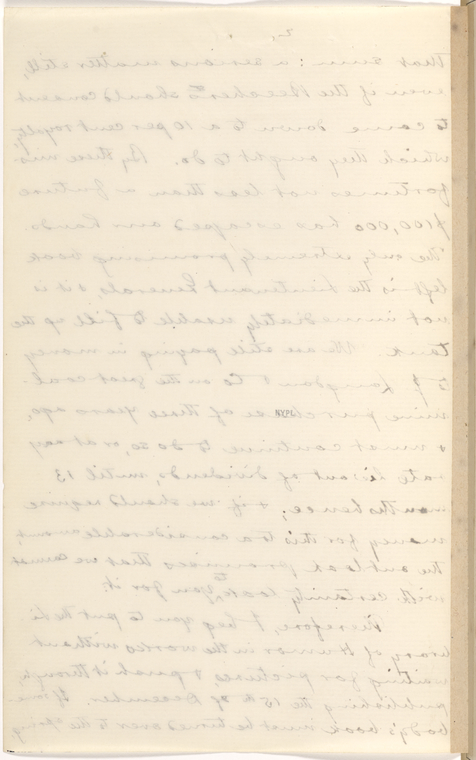 2.
that sum: a serious matter still,
even if the Beechers should consent
to come down to a 10 per cent royalty,
which they ought to do. By these mis-
fortunes not less than a future
$100,000 has escaped our hands
The only extremely promising book
left is the Lieutenant General's, & it is
not immediately usable to fill up the
tank. We are still paying in money
to J Langdon & Co on the great coal-
mine purchase of three years ago,
& must continue to do so, or at any
rate be out of dividends, until 13
months hence; & if we should require
money for this to a considerable amount,
the outlook promises that we cannot
with certainty look to you for it.
Therefore, I beg you to put the Li-
brary of Humor in the works without
waiting for pictures & push it through,
publishing the 15th of December. If some-
body's book must be turned over to the
NYPL